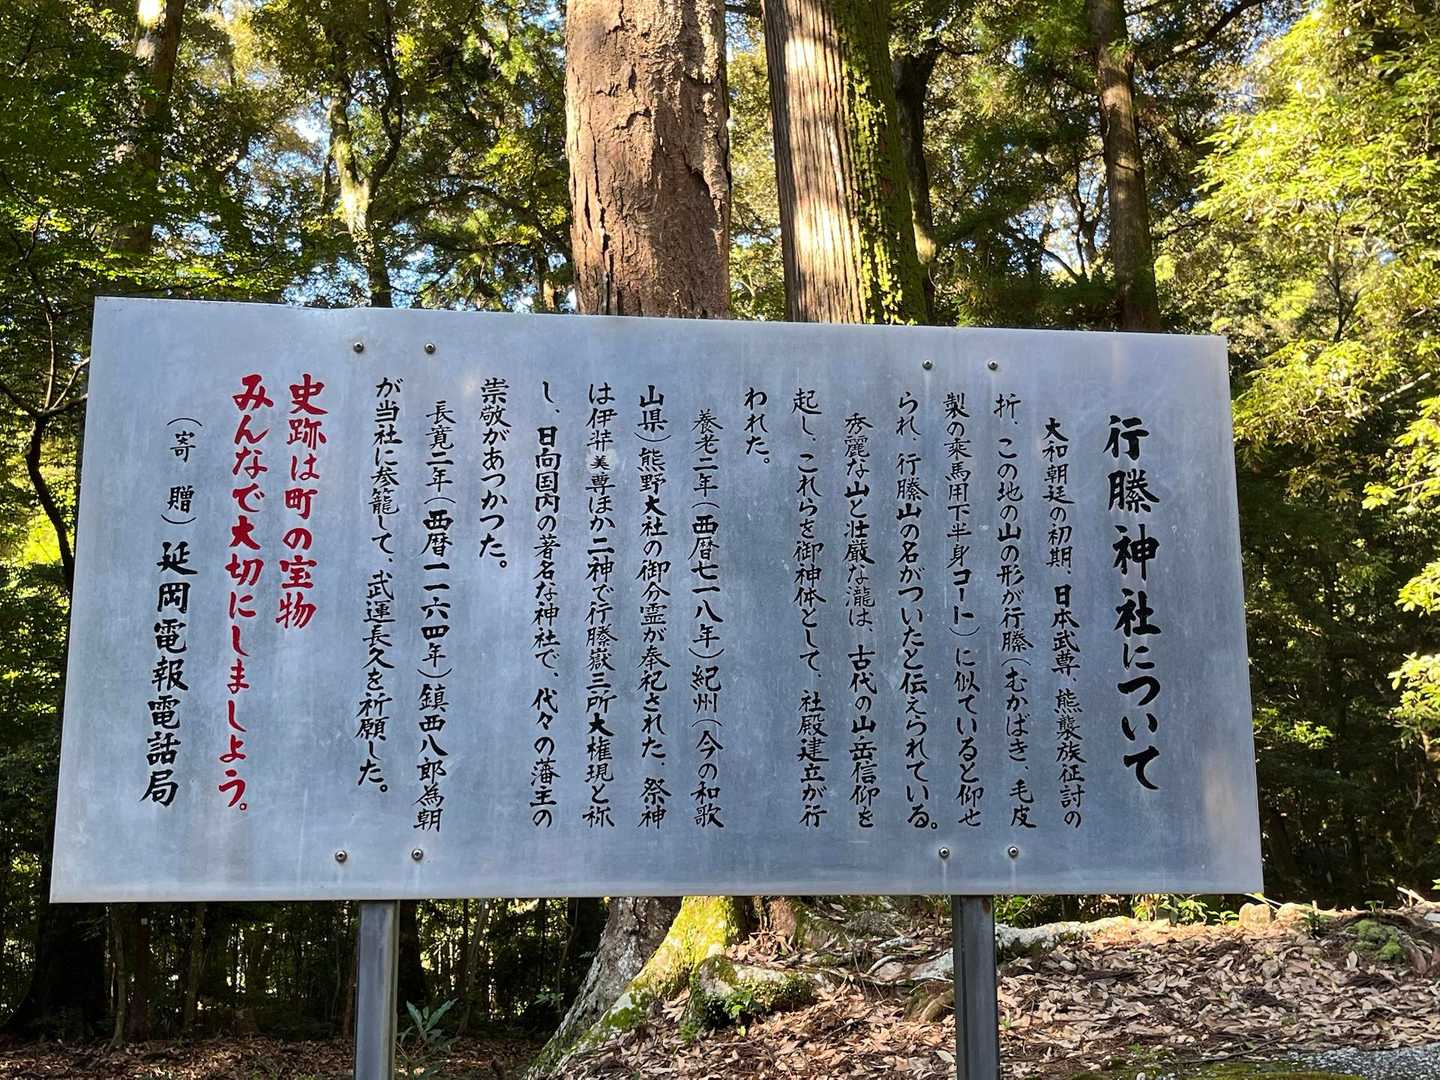 行縢神社について
大和朝廷の初期、日本武尊、熊襲族征討の
折、この地の山の形が行縢(むかばき、毛皮
製の乗馬用下半身コート)に似ていると仰せ
られ、行縢山の名がついたと伝えられている。
秀麗な山と壮厳な瀧は、古代の山岳信仰を
起し、これらを御神体として、社殿建立が行
われた。
養老二年(西暦七一八年)紀州(今の和歌
山県)熊野大社の御分霊が奉祀された、祭神
は伊弉美尊ほか二神で行縢嶽三所大権現と祢
し、日向国内の著名な神社で、代々の藩主の
崇敬があつかつた。
長寛二年(西暦一一六四年)鎮西八郎為朝
が当社に参籠して、武運長久を祈願した。
史跡は町の宝物
みんなで大切にしましよう。
(寄贈)延岡電報電話局